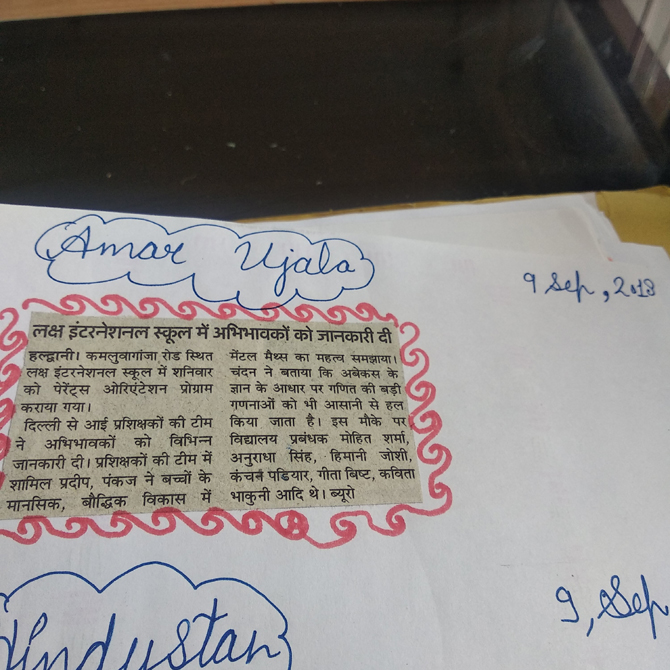 Amar Ujala
9 Sep, 2018
लक्ष इंटरनेशनल स्कूल में अभिभावकों को जानकारी दी
हल्द्वानी। कमलुवागांजा रोड स्थित
लक्ष इंटरनेशनल स्कूल में शनिवार
को पेरेंट्स ओरिएंटेशन प्रोग्राम
कराया गया।
दिल्ली से आई प्रशिक्षकों की टीम
ने अभिभावकों को विभिन्न
जानकारी दी। प्रशिक्षकों की टीम में
शामिल प्रदीप, पंकज ने बच्चों के
मानसिक, बौद्धिक विकास में
मेंटल मैथ्स का महत्व समझाया।
चंदन ने बताया कि अबेकस के
ज्ञान के आधार पर गणित की बड़ी
गणनाओं को भी आसानी से हल
किया जाता है। इस मौके पर
विद्यालय प्रबंधक मोहित शर्मा,
अनुराधा सिंह, हिमानी जोशी,
कंचन पडियार, गीता बिष्ट, कविता
भाकुनी आदि थे। ब्यूरो
Hindustan
9, Sep